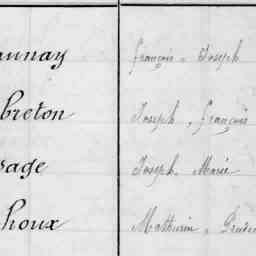 aunay François - Joseph
breton Joseph, François
sage Joseph - Marie
houx Mathurin, Pruden